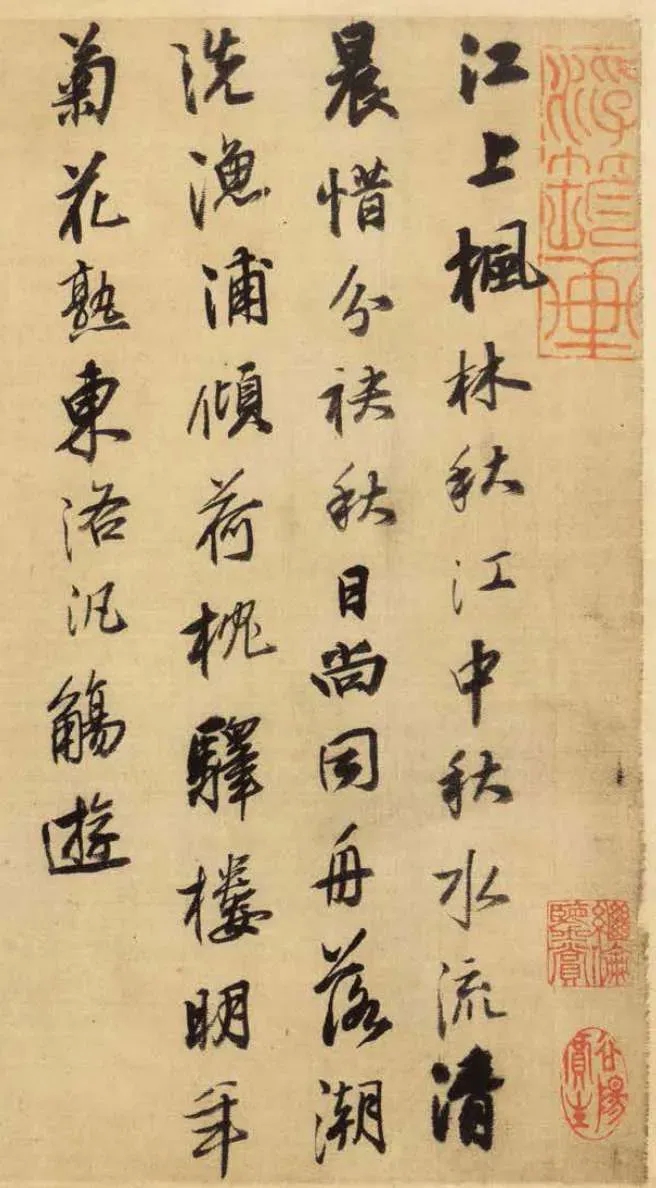 江上楓林秋江中秋水流清
晨惜分袂秋日尚同舟落潮
洗漁浦傾荷枕驛樓明年
菊花熟東洛汎觴遊